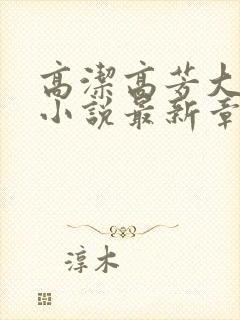 高潔高芳大
小說最新章
淳木